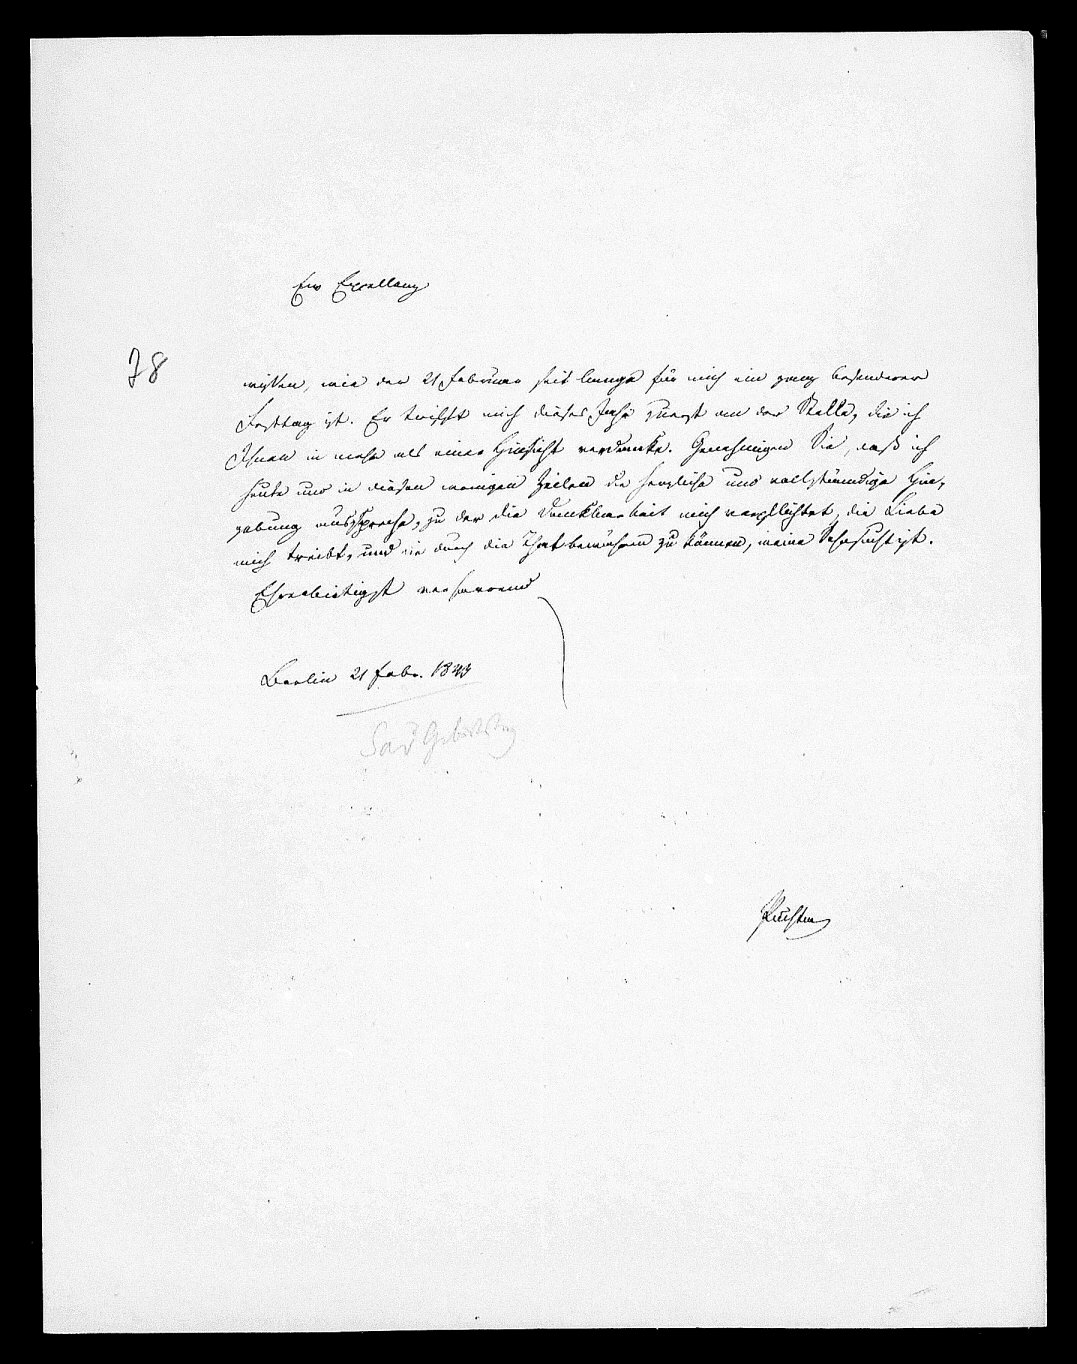 Ew Excellenz
78
wissen, wie der 21 Februar seit lange für mich ein ganz besonderer
Festtag ist. Er trifft mich dieses Jahr zuerst an der Stelle, die ich
Ihnen in mehr als einer Hinsicht verdanke. Genehmigen Sie, daß ich
heute nur in diesen wenigen Zeilen die herzliche und vollständige Hin-
gebung ausspreche, zu der die Dankbarkeit mich verpflichtet, die Liebe
mich treibt, und die durch die That bewähren zu können, meine Sehnsucht ist.
Ehrerbietigst verharrend
Berlin 21 Febr. 1843
Sav Geburtstag